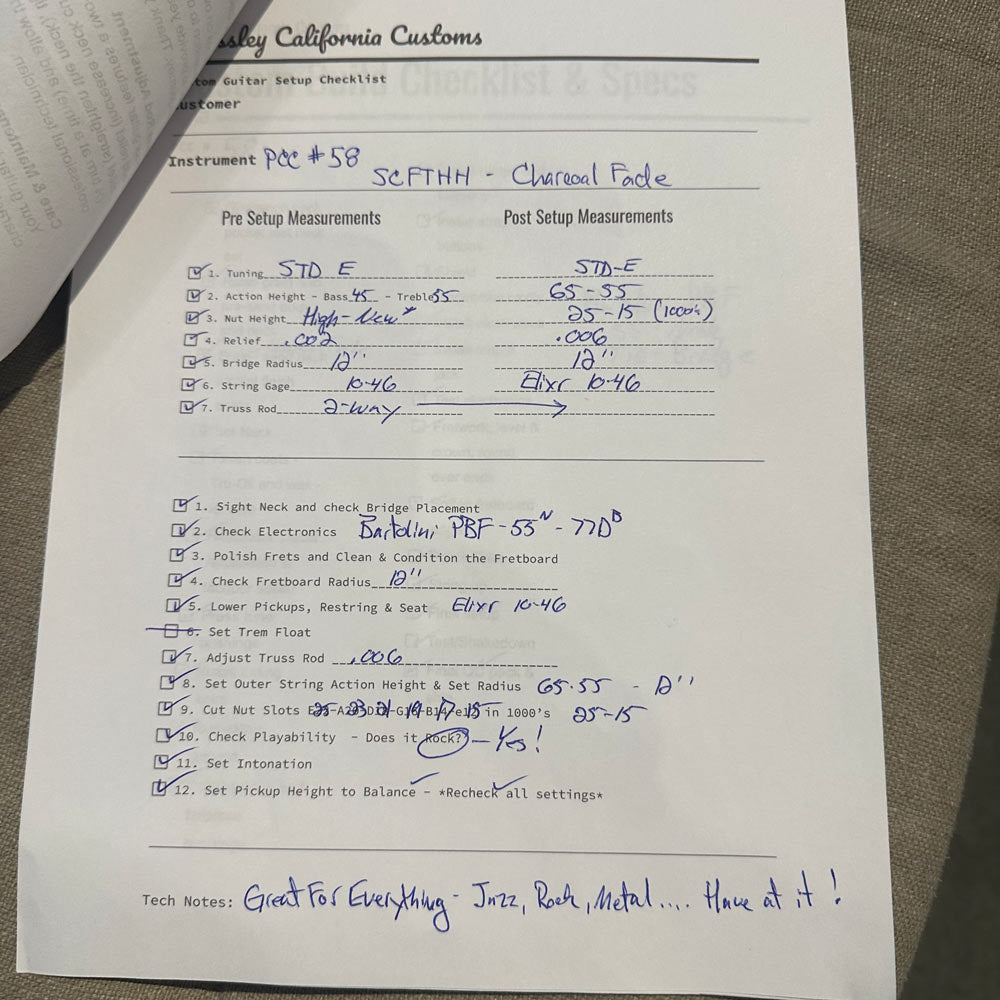 ssley California Customs
tom Guitar Setup Checklist
ustomer
Instrument PCC #58
SCFTHH - Charcoal Fade
Pre Setup Measurements Post Setup Measurements
1. Tuning STD E STD-E
2. Action Height - Bass 45 - Treble 55 65-55
3. Nut Height High-New* 25-15 (1000's)
4. Relief .002 .006
5. Bridge Radius 12" 12"
6. String Gage 10-46 Elixr 10-46
7. Truss Rod 2-way →
1. Sight Neck and check Bridge Placement
2. Check Electronics Bartolini PBF-55ᴺ - 77Dᴮ
3. Polish Frets and Clean & Condition the Fretboard
4. Check Fretboard Radius 12"
5. Lower Pickups, Restring & Seat Elixr 10-46
6. Set Trem Float
7. Adjust Truss Rod .006
8. Set Outer String Action Height & Set Radius 65-55 - 12"
9. Cut Nut Slots 25 23 21 19 17 15 in 1000's 25-15
10. Check Playability - Does it Rock? - Yes!
11. Set Intonation
12. Set Pickup Height to Balance - *Recheck all settings*
Tech Notes: Great For Everything - Jazz, Rock, Metal.... Have at it!